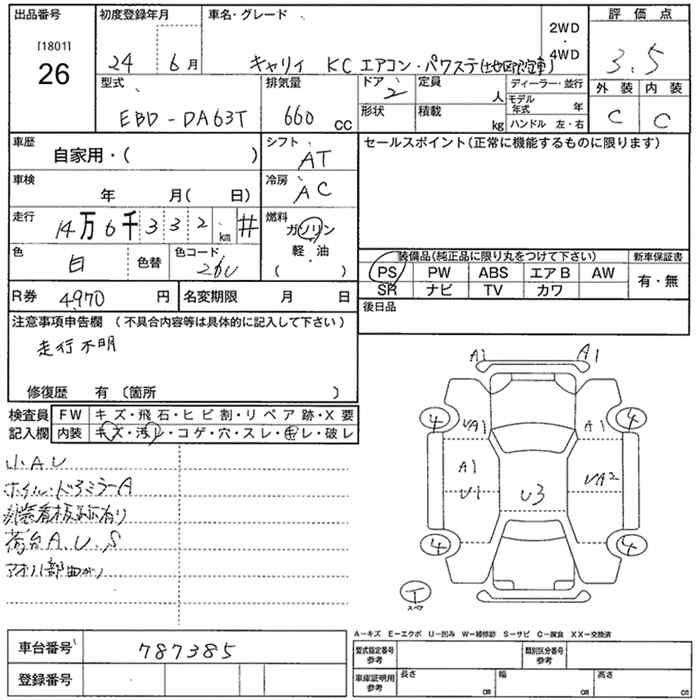 出品番号
[1801]
26
初度登録年月
24 6月
車名・グレード
キャリイ KC エアコン・パワステ
2WD
4WD
評価点
3.5
外装 内装
C C
型式
EBD-DA63T
排気量
660 CC
ドア
2
形状
定員
人
積載
kg
ディーラー・並行
モデル年式 年
ハンドル 左・右
車歴
自家用・( )
車検
年 月( 日)
走行
14万6千332 km #
色
白
色替
色コード
26U
シフト
AT
冷房
AC
燃料
ガソリン
軽・油
( )
セールスポイント(正常に機能するものに限ります)
装備品(純正品に限り丸をつけて下さい)
PS PW ABS エアB AW
SR ナビ TV カワ
新車保証書
有・無
R券 4970 円
名変期限 月 日
後日品
注意事項申告欄 (不具合内容等は具体的に記入して下さい)
走行不明
修復歴 有 〔箇所 〕
検査員記入欄
FW キズ・飛石・ヒビ割・リペア跡・X要
内装 キズ・汚レ・コゲ・穴・スレ・キレ・破レ
小AU
ホイル・ドアミラーA
外装看板跡有り
荷台A.U.S
アオリ部曲がり
A1 A1
4 4
UA1 A1
A1
U1 U3 UA2
4 4
T
スペア
車台番号 787385
登録番号
A-キズ E-エクボ U-凹み W-補修跡 S-サビ C-腐食 XX-交換済
型式指定番号
参考
類別区分番号
参考
車庫証明用
参考
長さ cm
幅 cm
高さ cm